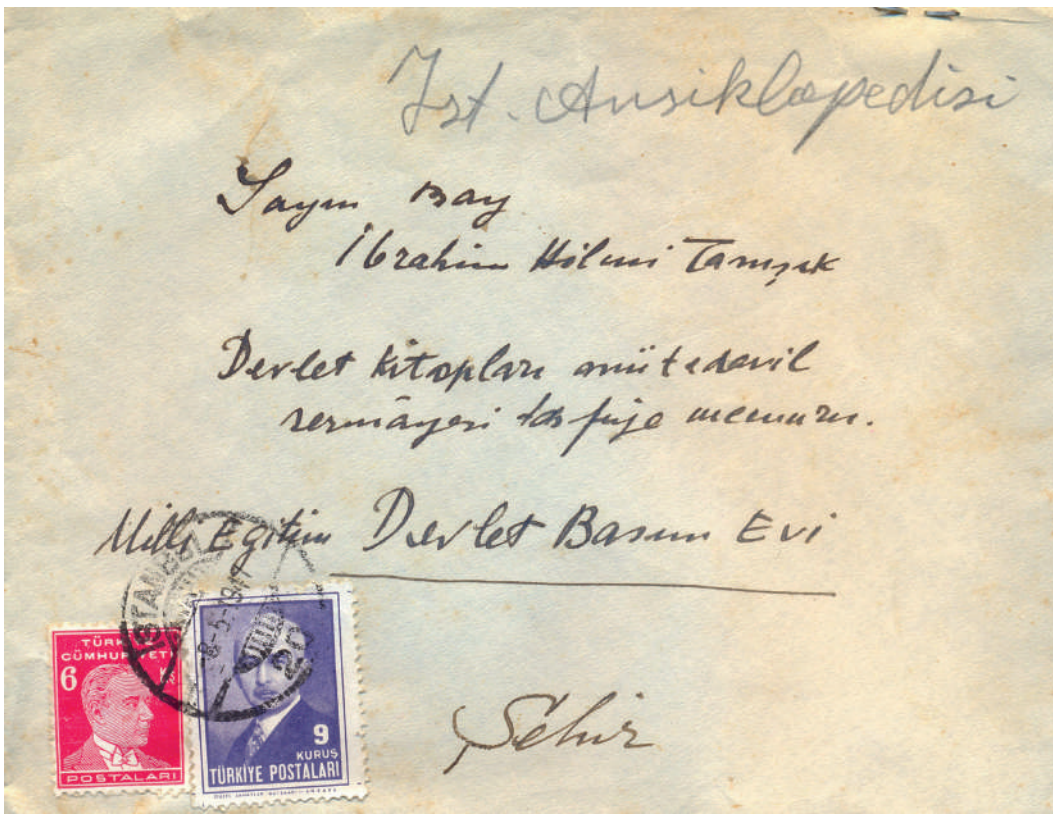 İst. Ansiklopedisi
Sayın Bay
İbrahim Hilmi Tanışık
Devlet Kitapları mütedavil
sermâyesi tasfiye memuru.
Milli Eğitim Devlet Basım Evi
Şehir
İSTANBUL
-8-5-1947
20
TÜRKİYE
CÜMHURİYETİ
6 Kş
POSTALARI
9
KURUŞ
TÜRKİYE POSTALARI